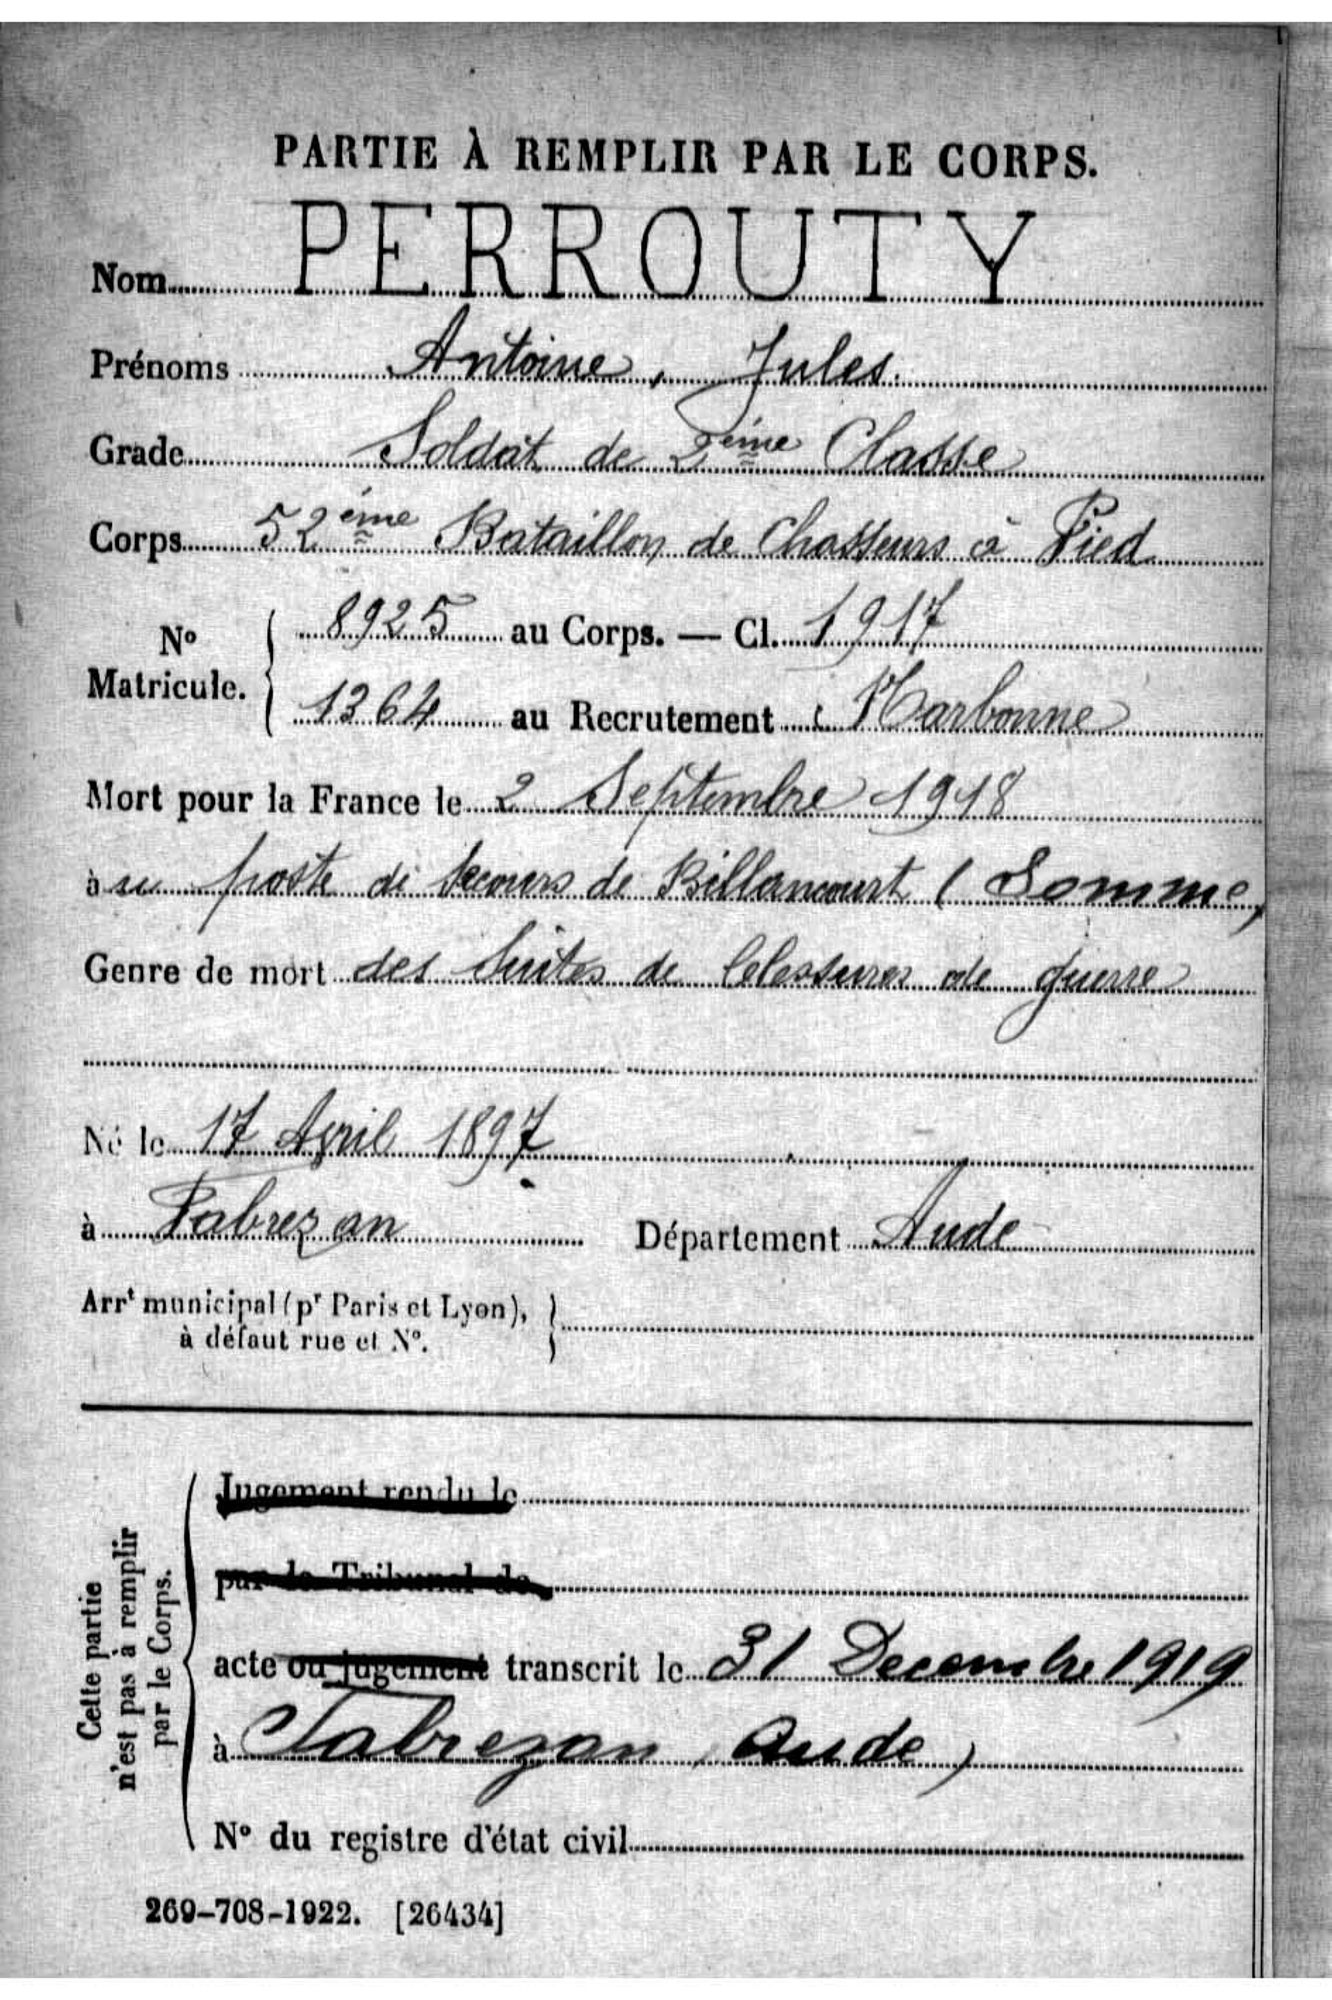 PARTIE À REMPLIR PAR LE CORPS.
Nom PERROUTY
Prénoms Antoine, Jules.
Grade Soldat de 2ème Classe
Corps 52ème Bataillon de Chasseurs à Pied
No Matricule. { 8925 au Corps. — Cl. 1917
1364 au Recrutement Narbonne
Mort pour la France le 2 Septembre 1918
à u poste de secours de Billancourt (Somme)
Genre de mort des suites de blessures de guerre
Né le 17 Avril 1897
à Fabrezan Département Aude
Arrt municipal (pr Paris et Lyon), }
à défaut rue et No.
Cette partie
n'est pas à remplir
par le Corps.
Jugement rendu le
par le Tribunal de
acte ou jugement transcrit le 31 Decembre 1919
à Fabrezan, Aude)
No du registre d'état civil
269-708-1922. [26434]